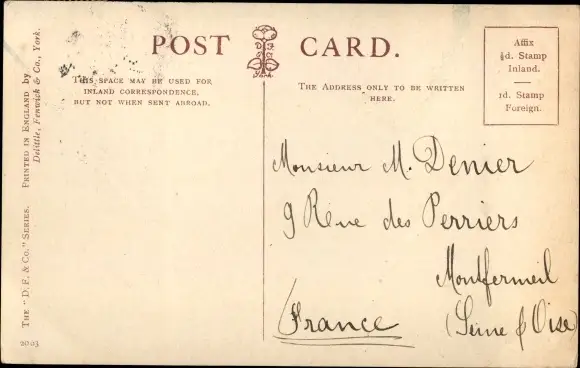 POST CARD.
THIS SPACE MAY BE USED FOR
INLAND CORRESPONDENCE,
BUT NOT WHEN SENT ABROAD.
THE ADDRESS ONLY TO BE WRITTEN
HERE.
Affix
½d. Stamp
Inland.
1d. Stamp
Foreign.
Monsieur M. Denier
9 Rue des Perriers
Montfermeil
(Seine & Oise)
France
THE "D. F. & Co." SERIES. PRINTED IN ENGLAND by
Delittle, Fenwick & Co., York.
2003